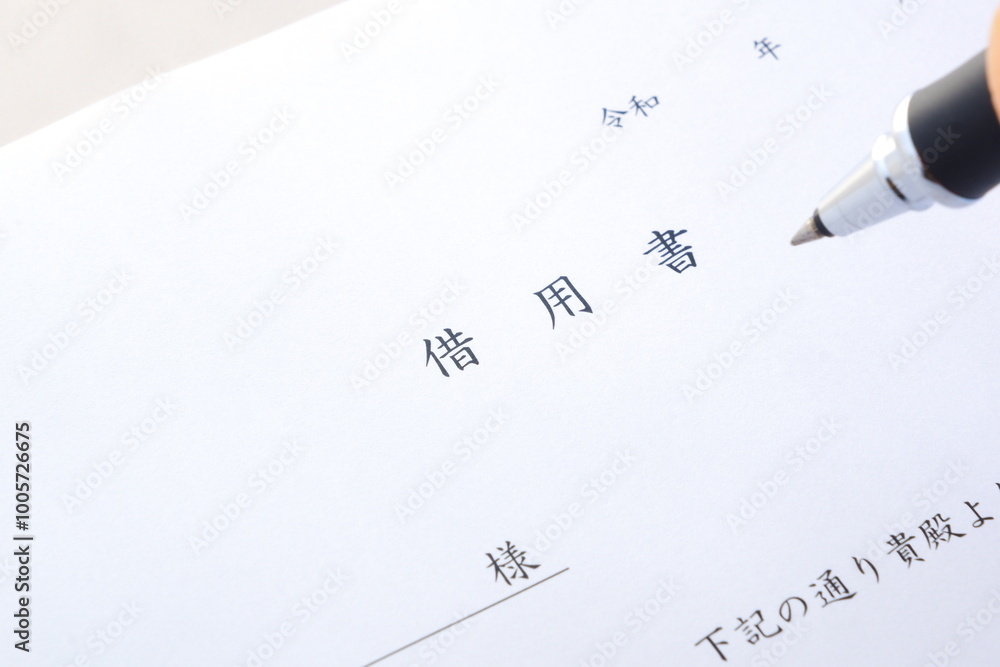 令和　　年
借用書
様
下記の通り貴殿よ
Adobe Stock | #1005726675